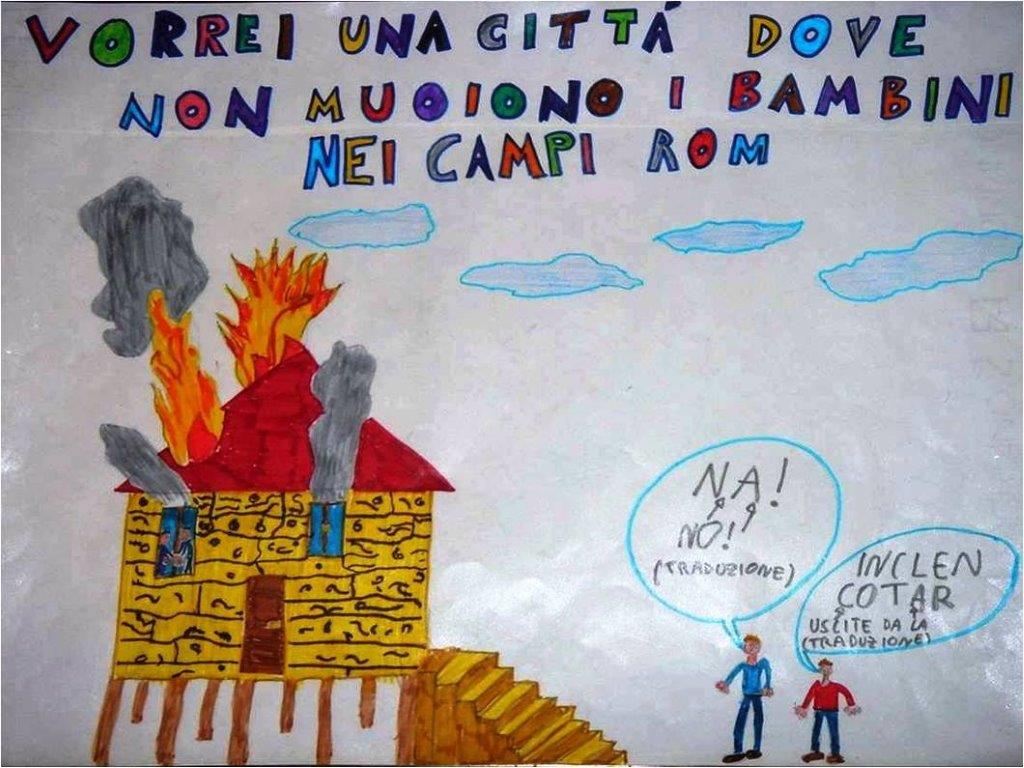 VORREI UNA CITTÁ DOVE
NON MUOIONO I BAMBINI
NEI CAMPI ROM
NA!
NÓ!
(TRADUZIONE)
INCLEN
COTAR
USCITE DA LÀ
(TRADUZIONE)